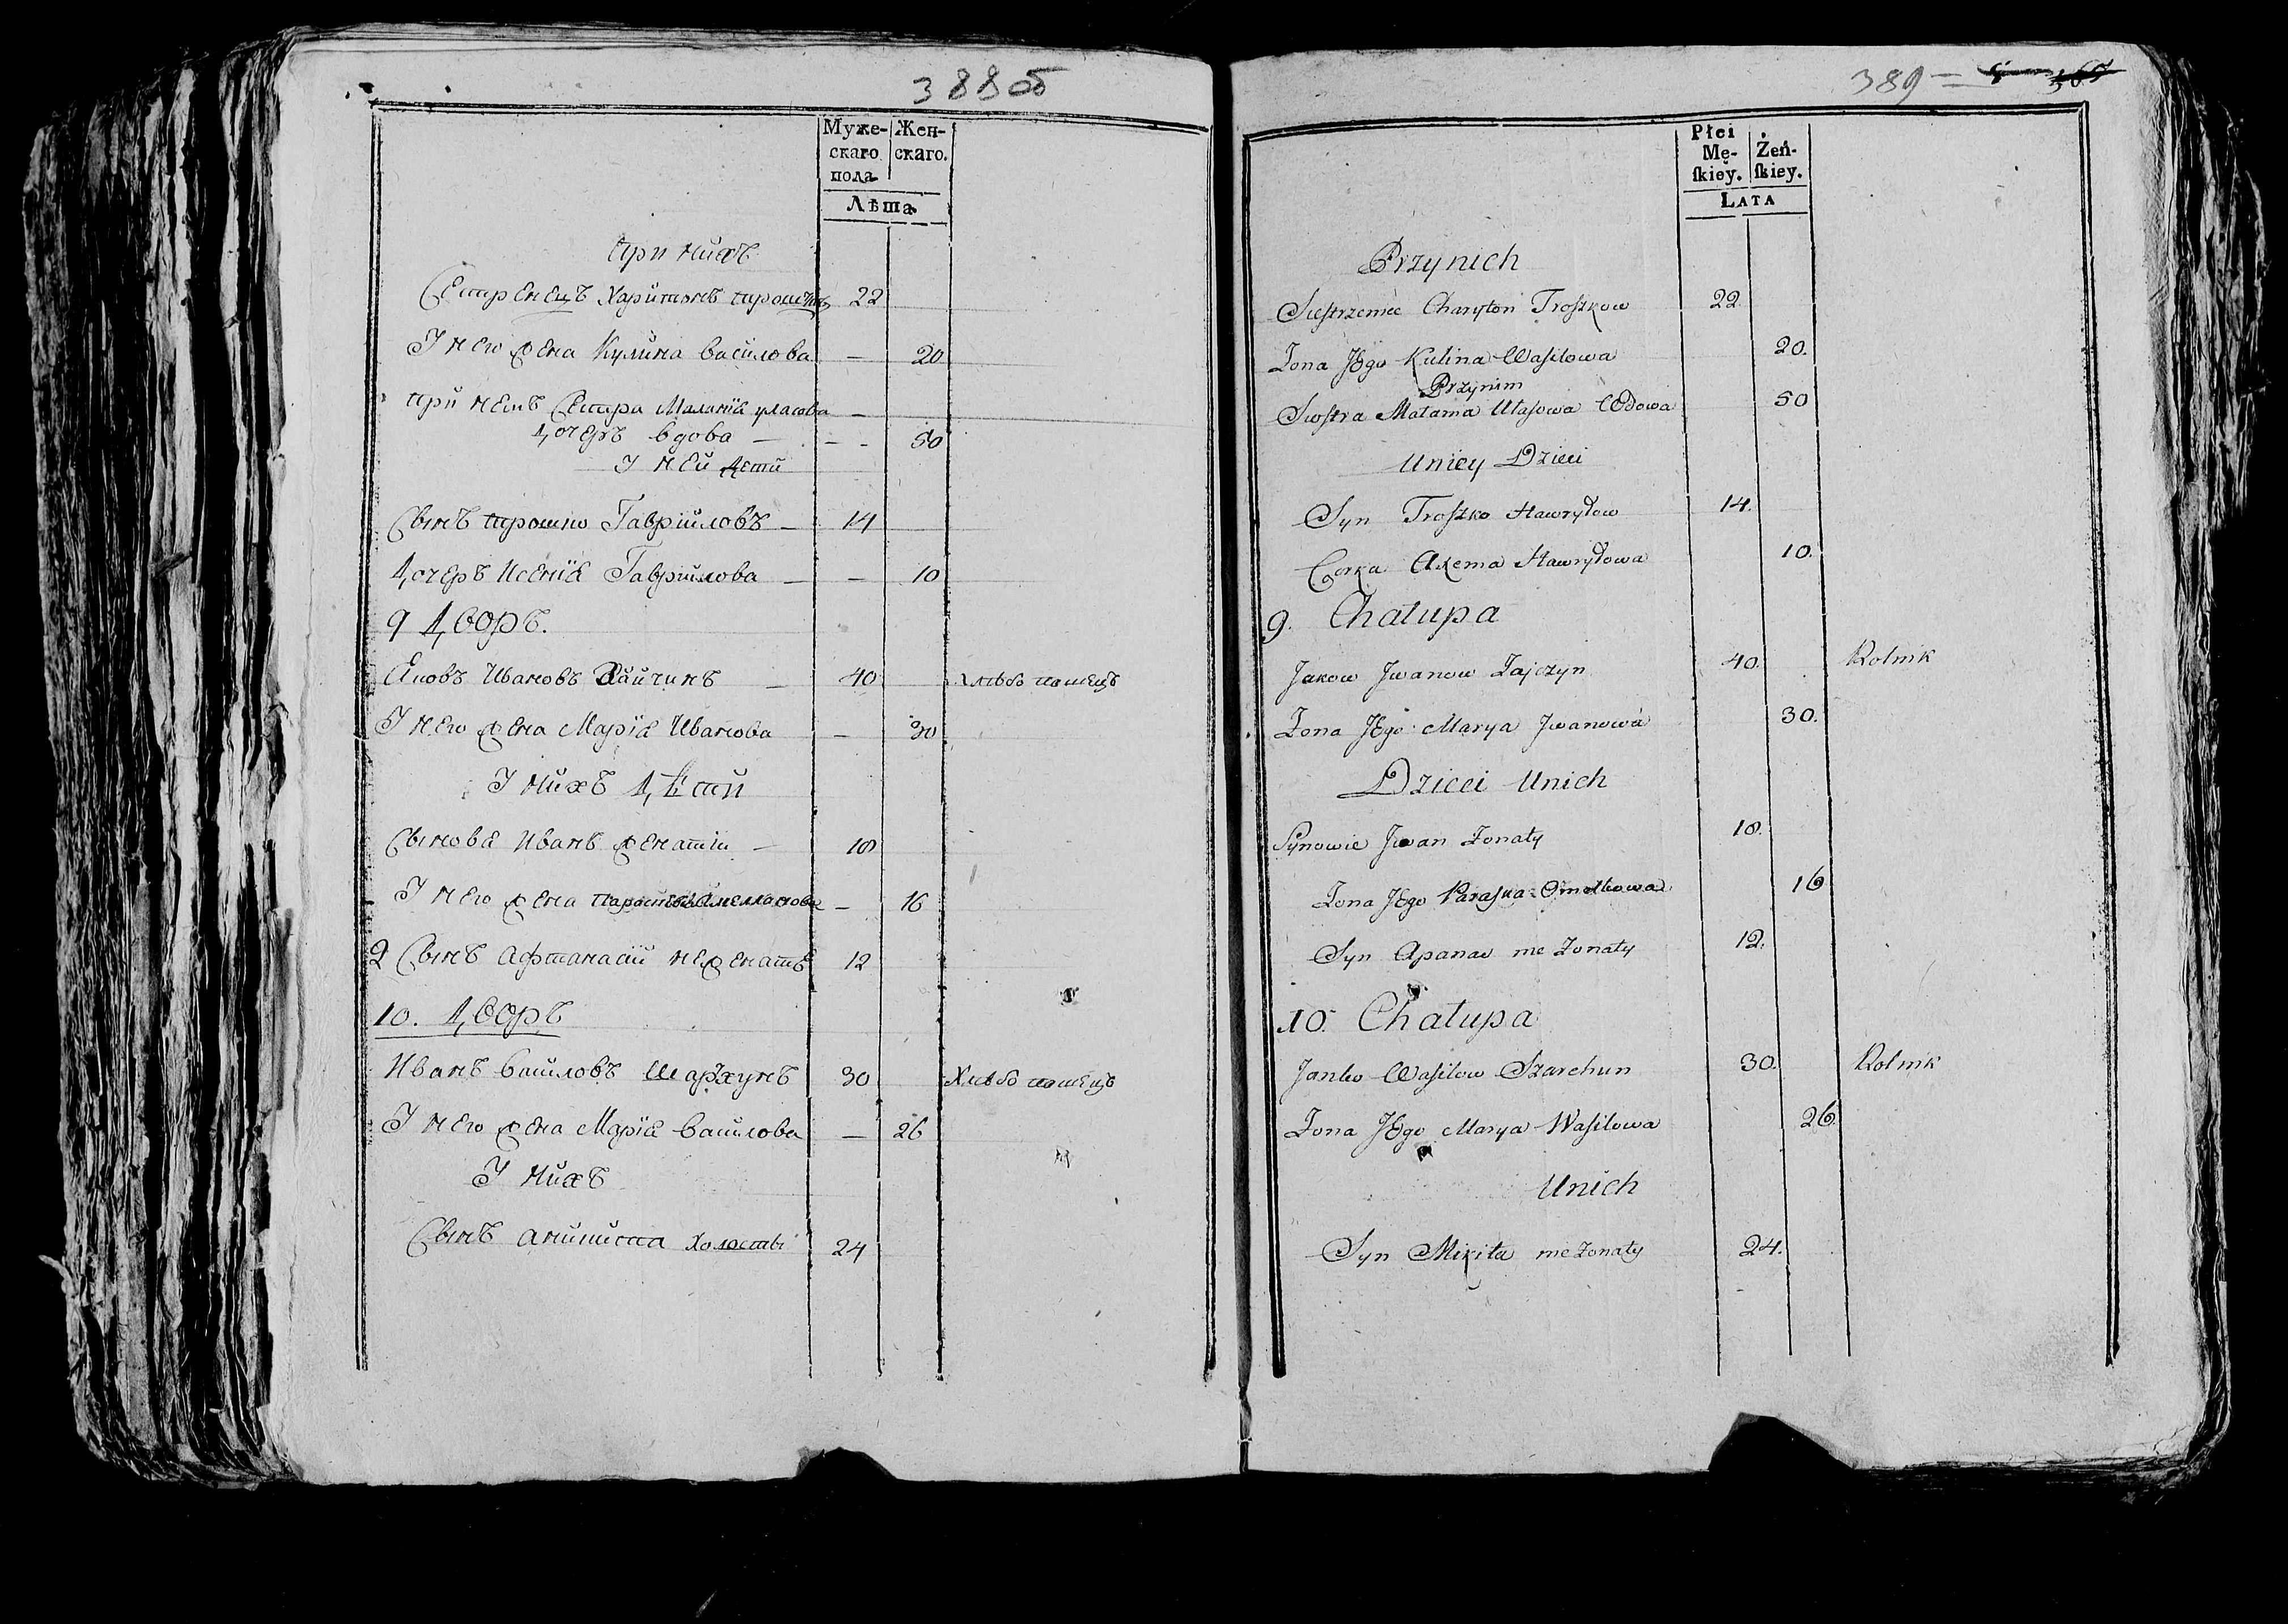 388об
Муже- Жен-
скаго скаго.
пола
Лѣта
при нихъ
Сестренецъ Харитонъ 22
У него жена Кулина Василова — 20
при немъ Сестра Маланїа уласова —
дочеръ вдова — — - 50
У ней дети
Сынъ трошко Гаврїиловъ — 14
дочеръ Ксенїа Гаврїилова — — 10
9 дворъ.
Яковъ Ивановъ Зайчинъ — 40 хлѣбопашецъ
У него жена Марїа Иванова — 30
У нихъ дѣти
Сыновя Иванъ женатїи — 18
У него жена — 16
2 Сынъ Афтанасїй нежонатъ 12
10. дворъ
Иванъ Василовъ Шархунъ 30 Хлѣбопашецъ
У него жена Марїа Василова — 26
У нихъ
Сынъ холостъ 24
389 =
Płci
Mę- Żeń-
ſkiey. ſkiey.
LATA
Przynich
Siestrzeniec Charyton Troszkow 22
Żona Jego Kulina Wasilowa 20.
Przynim
Siostra Małania Ułasowa Wdowa 50
Uniey Dzieci
Syn Troszko Hawryłow 14.
Corka Axenia Hawryłowa 10.
9. Chałupa
Jakow Jwanow Zajczyn 40. Rolnik
Żona Jego Marya Jwanowa 30.
Dzieci Unich
Synowie Jwan Żonaty 18.
Żona Jego Paraska 16
Syn Apanas nie Żonaty 12.
10. Chałupa
Janko Wasilow Szarchun 30. Rolnik
Żona Jego Marya Wasilowa 26.
Unich
Syn Mikita nie Żonaty 24.